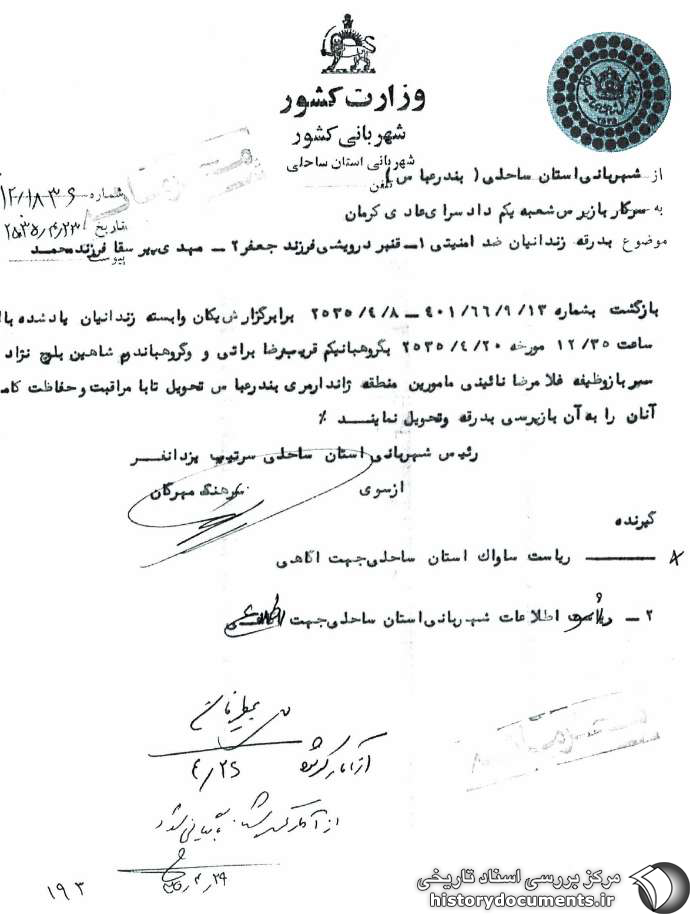 وزارت کشور
شهربانی کشور
شهربانی استان ساحلی
تلفن
شماره ۱۲/۱۸۳۶
تاریخ ۲۵۳۵/۴/۲۳
پیوست
از شهربانی استان ساحلی (بندرعباس)
به سرکار بازپرس شعبه یکم دادسرای عادی کرمان
موضوع بدرقه زندانیان ضد امنیتی ۱ـ قنبر درویشی فرزند جعفر ۲ـ مهدی پیر سقا فرزند محمد
بازگشت بشماره ۴۰۱/۶۶/۹/۱۳ ـ ۲۵۳۵/۴/۸ برابر گزارش یکان وابسته زندانیان یادشده بالا
ساعت ۱۲/۳۵ مورخه ۲۵۳۵/۴/۲۰ بگروهبانیکم قریب رضا براتی و وگروهباندوم شاهین بلوچ نژاد
سرباز وظیفه غلامرضا نائینی مامورین منطقه ژاندارمری بندرعباس تحویل تا با مراقبت و حفاظت کامل
آنان را به آن بازپرسی بدرقه و تحویل نمایند ٪
رئیس شهربانی استان ساحلی سرتیپ یزدانفر
ازسوی سرهنگ مهرگان
گیرنده
ریاست ساواک استان ساحلی جهت اگاهی
۲ ـ اطلاعات شهربانی استان ساحلی جهت
۴/۲۵
از آمار
۱۹۳
مرکز بررسی اسناد تاریخی
historydocuments.ir